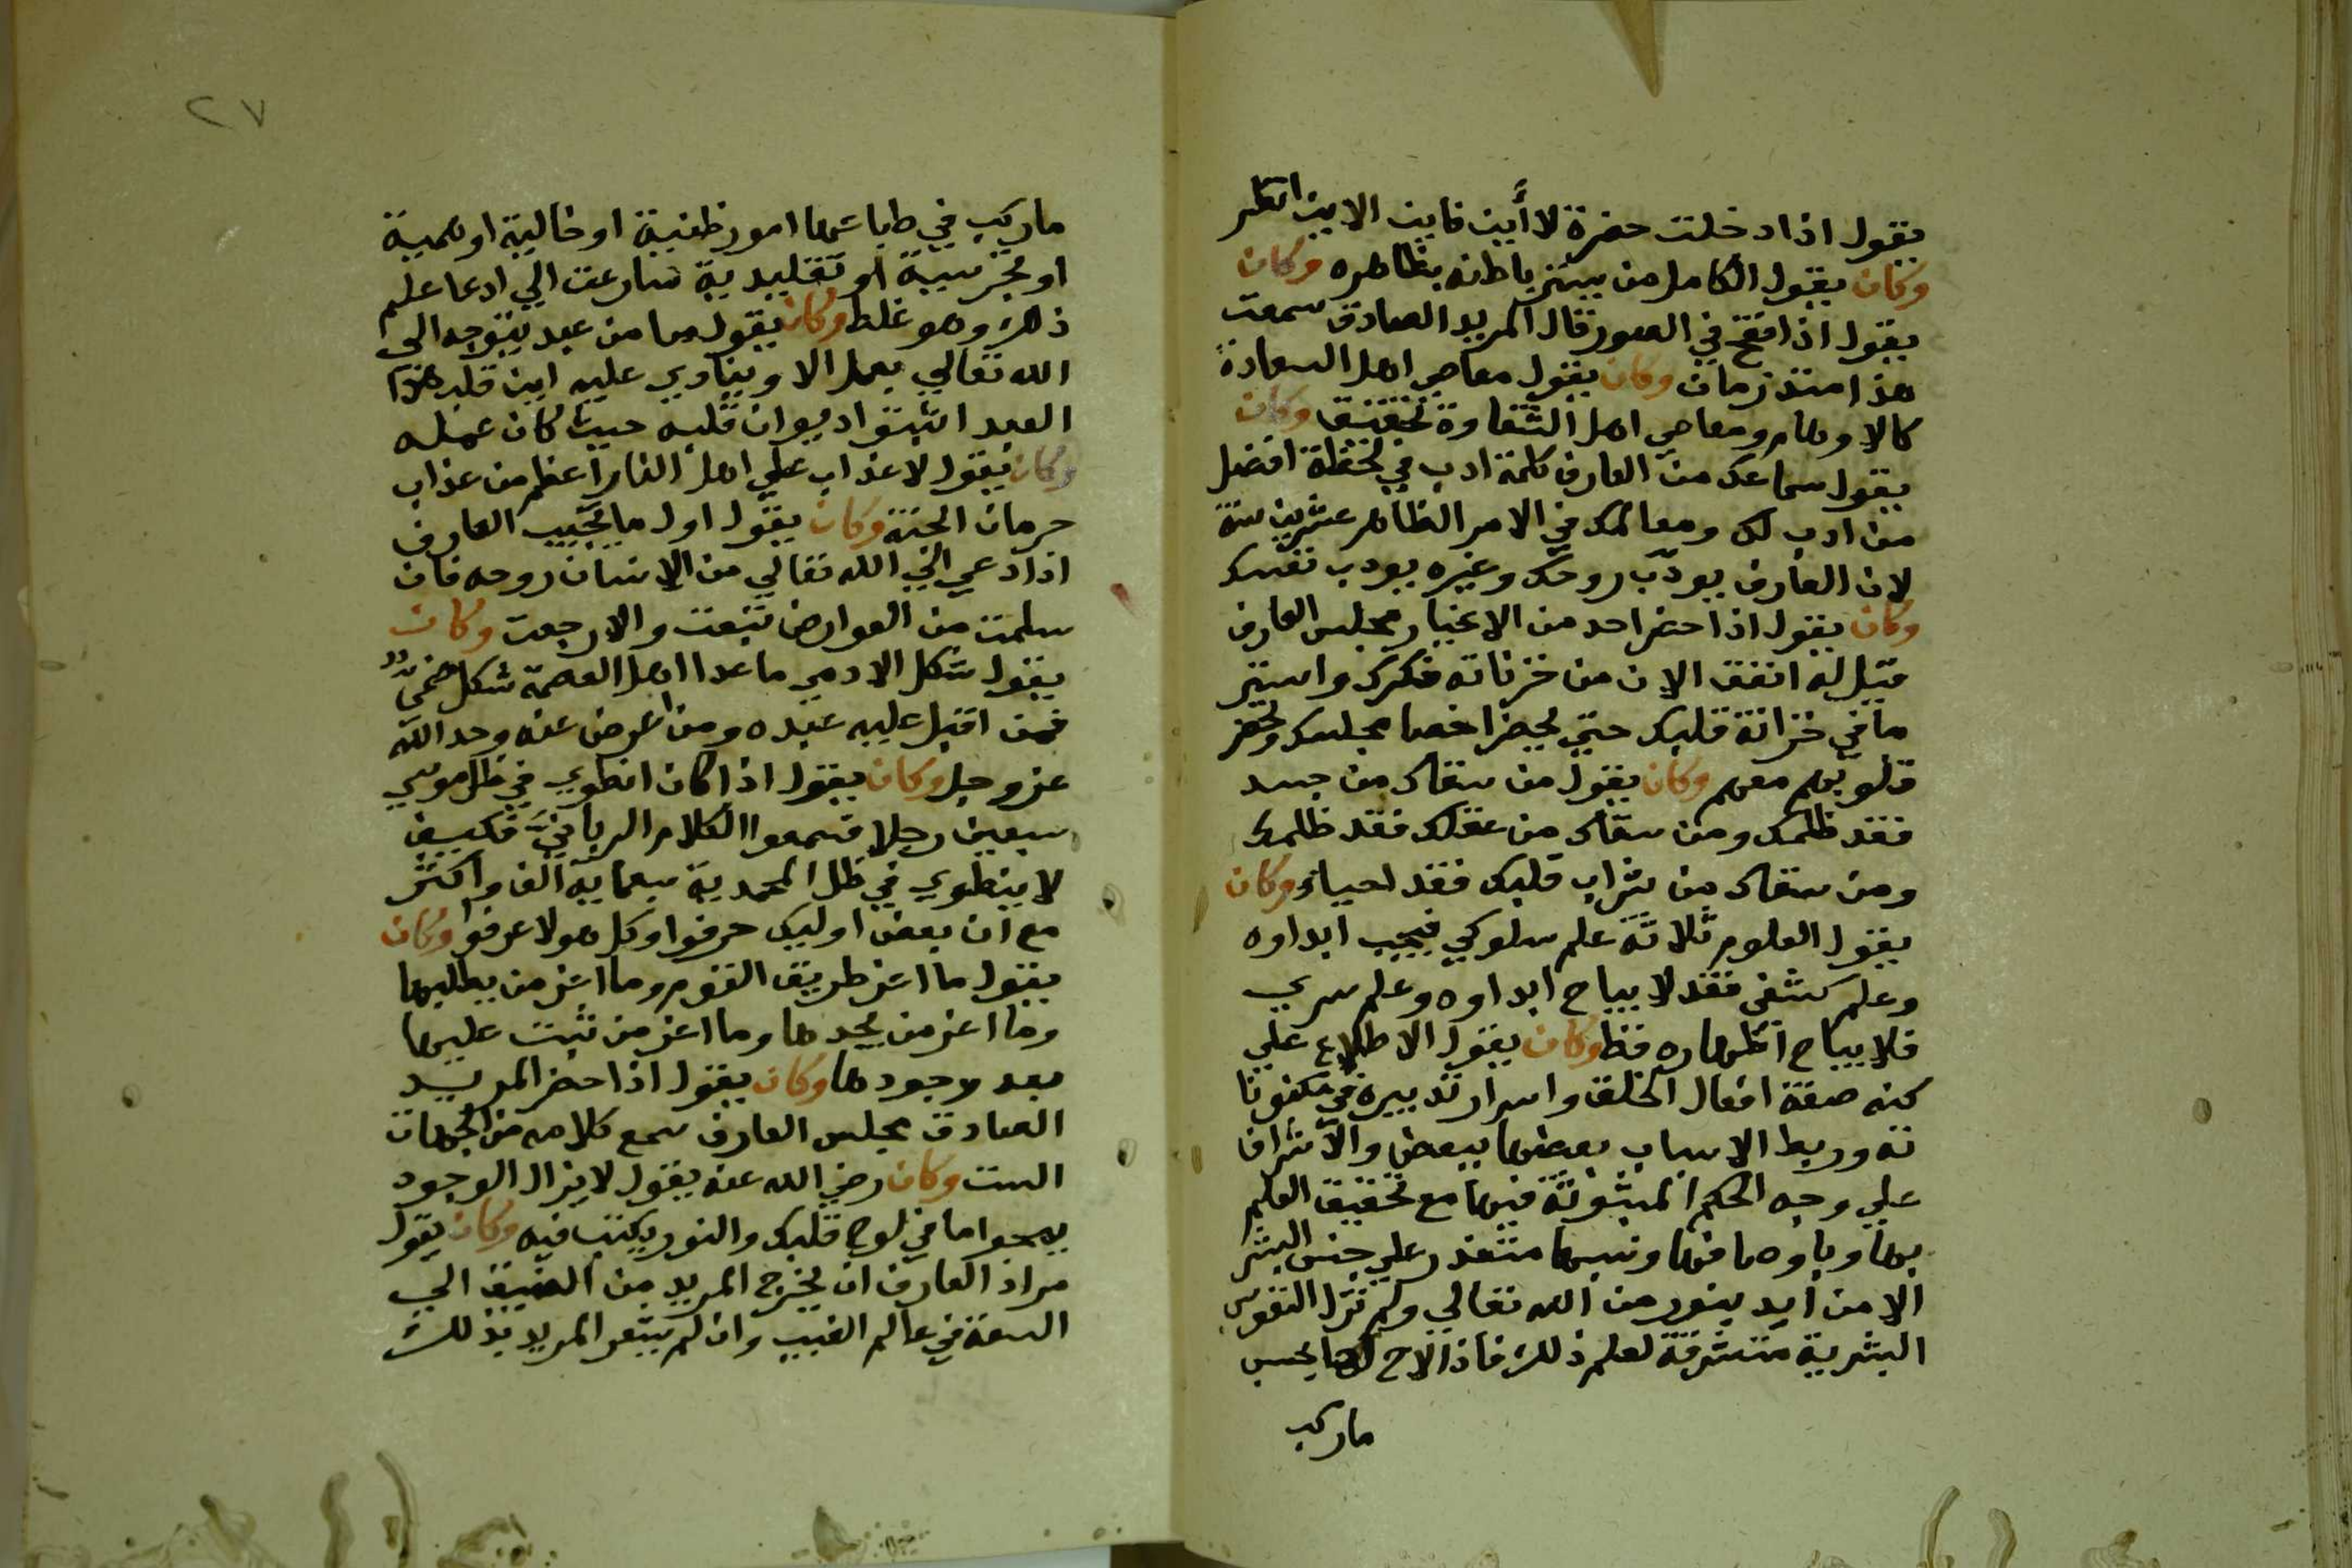 يقول اذا دخلت حضرة لا أين فاين الاين انظر
وكان يقول الكامل من يستر باطنه بظاهره وكان
يقول اذا نفخ في الصور قال المريد الصادق سمعت
هذا منذ زمان وكان يقول معاصي اهل السعادة
كالاوهام ومعاصي اهل الشقاوة تحقيق وكان
يقول سماعك من العارف كلمة ادب في لحظة افضل
من ادبك ومعالمك في الامر الظاهر عشرين سنة
لان العارف يودّب روحك وغيره يودب نفسك
وكان يقول اذا حضر احد من الاغيار مجلس العارف
قيل له انفق الان من خزناته فكرك واستر
ما في خزانة قلبك حتي يحضر اخصا مجلسك وتحضر
قلوبهم معهم وكان يقول من سقاك من جسد
فقد ظلمك ومن سقاك من عقلك فقد ظلمك
ومن سقاك من شراب قلبك فقد احياك وكان
يقول العلوم ثلاثة علم سلوكي فيجب ابداوه
وعلم كشفي فقد لا يباح ابداوه وعلم سري
فلا يباح اظهاره قط وكان يقول الاطلاع علي
كنه صفة افعال الخلق واسرار تدبيره في مكنونا
ته وربط الاسباب بعضها ببعض والاشراف
علي وجه الحكم المبثوثة فيها مع تحقيق العلم
بها متعذر علي جنس البشر
الا من ايد بنور من الله تعالي ولم تزل النفوس
البشرية متشرفة لعلم ذلك فاذا لاح لها بحسب
ماركب
٢٧
ماركب في طباعها امور ظنية او خالية او وهمية
او تقليدية سارعت الي ادعا علم
ذلك وهو غلط وكان يقول ما من عبد يتوجه الي
الله تعالي بعمل الا وينادي عليه اين قلب هذا
العبد اثبتوا ديوان قلبه حيث كان عمله
وكان يقول لا عذاب علي اهل النار اعظم من عذاب
حرمان الجنة وكان يقول اول ما يجيب العارف
اذا دعي الي الله تعالي من الانسان روحه فان
سلمت من العوارض تبعت والا رجعت وكان
يقول شكل الادمي ما عدا اهل العصمة شكل
فمن اقبل عليه عبده ومن اعرض عنه وحد الله
عز وجل وكان يقول اذا كان انطوي في ظل موسي
سبعين رجلا فسمعوا الكلام الربانيّ فكيف
لا ينطوي في ظل المحمدية سبعماية الف واكثر
مع ان بعض اوليك حرفوا وكل هولا عرفوا وكان
يقول ما اعز طريق القوم وما اعز من يطلبها
وما اعز من يجدها وما اعز من ثبت عليها
بعد وجودها وكان يقول اذا حضر المريد
الصادق مجلس العارف سمع كلامه من الجهات
الست وكان رضي الله عنه يقول لا يزال الوجود
يمحوا ما في لوح قلبك والنور يكتب فيه وكان يقول
مراد العارف ان يخرج المريد من الضيق الي
السعة في عالم الغيب وان لم يشعر المريد بذلك